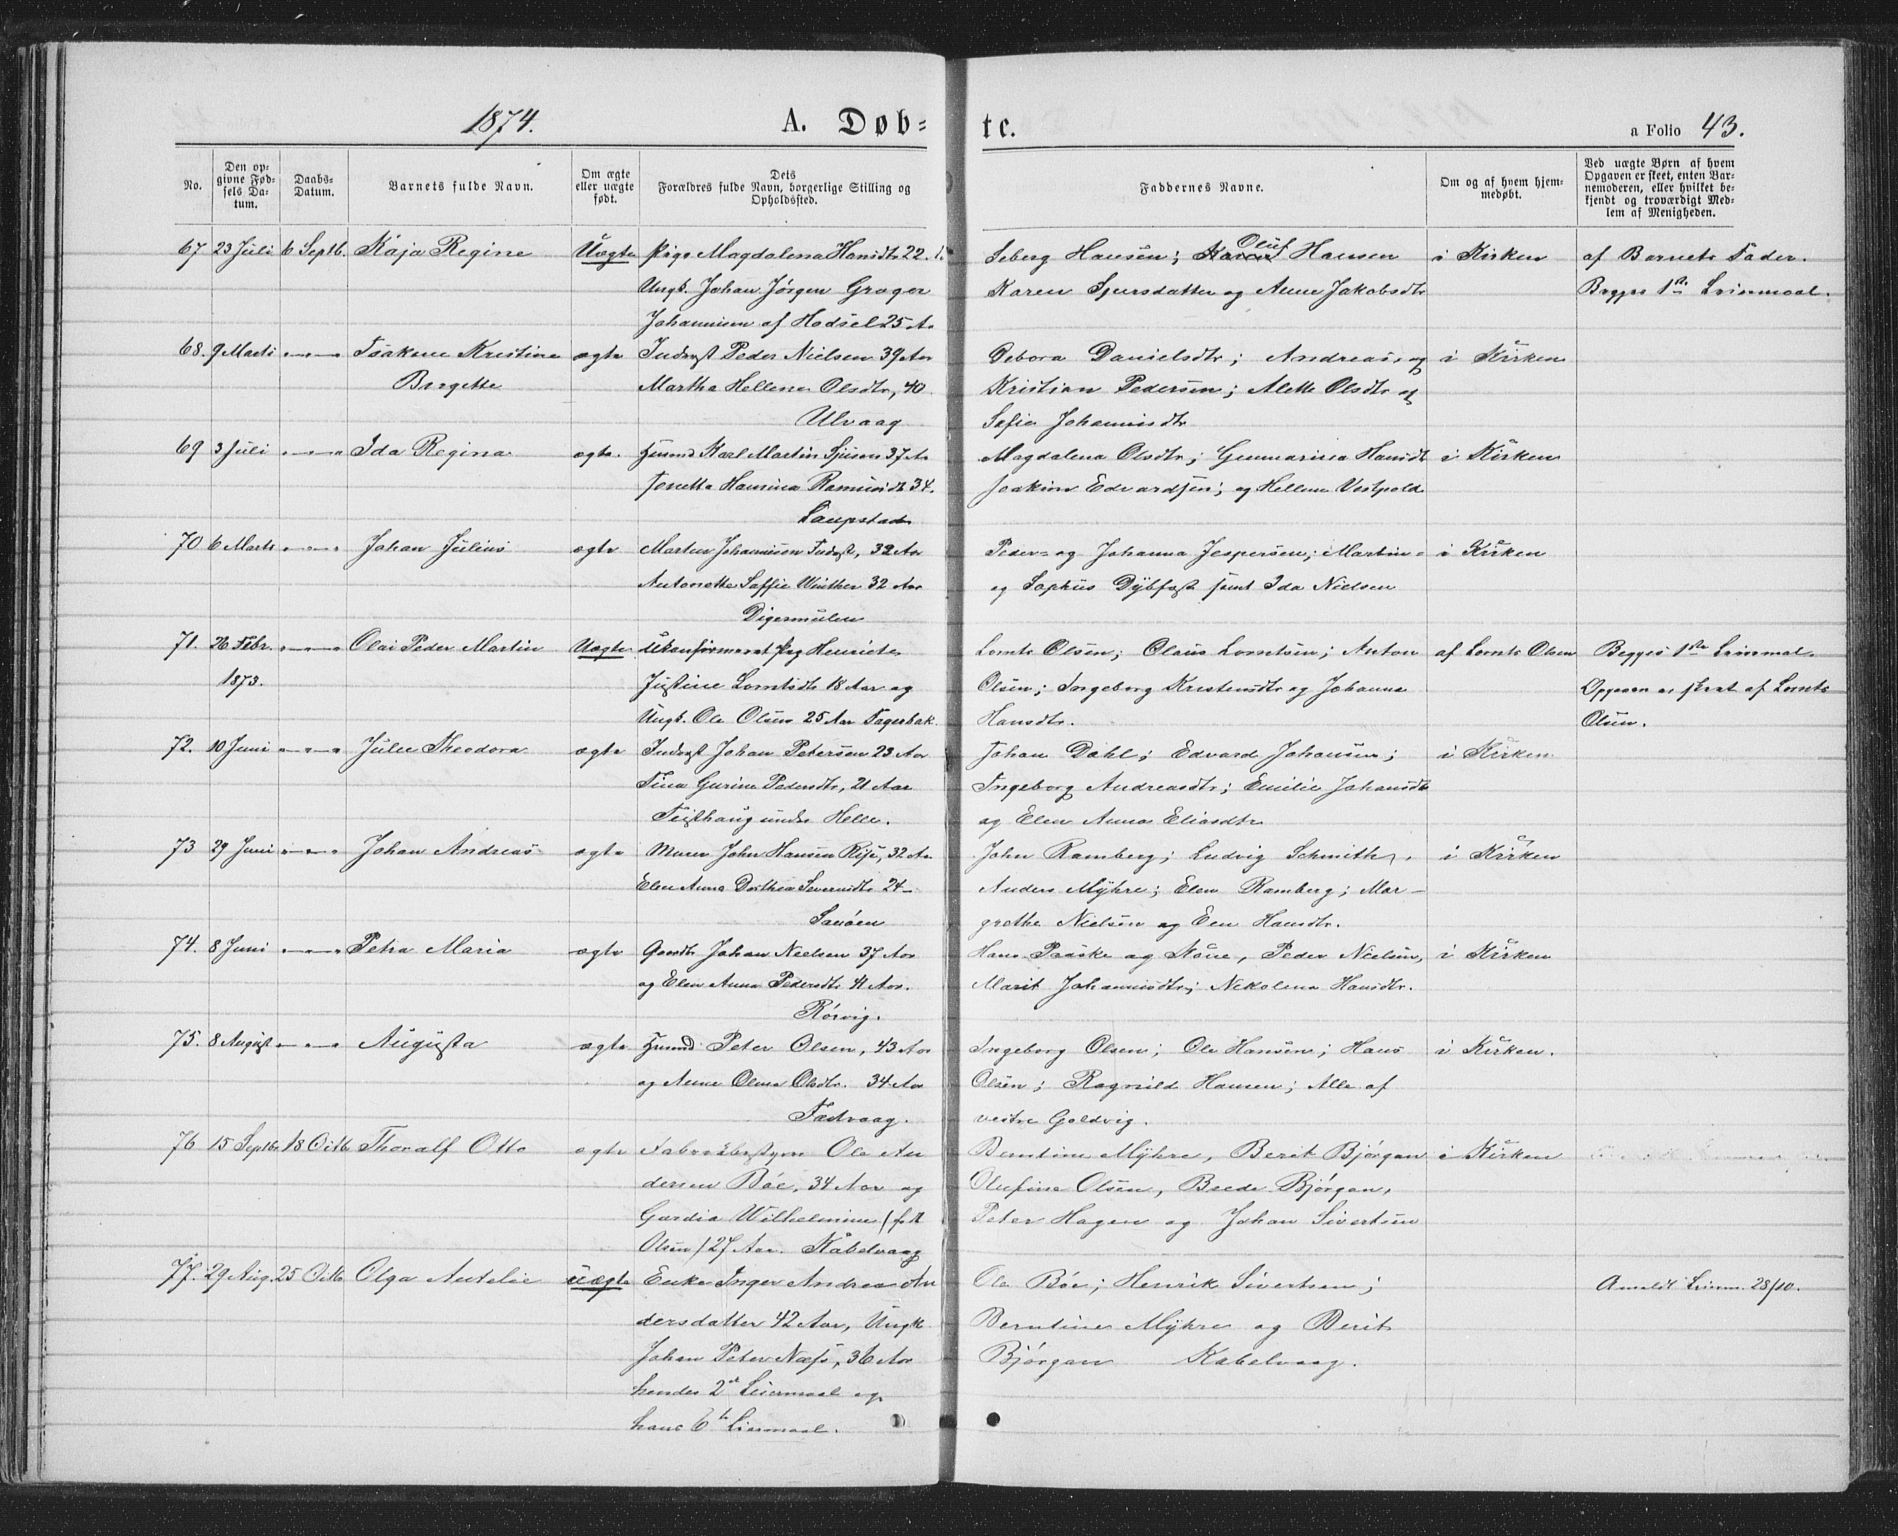 1874. A. Døb= te. a Folio 43.
No. Den opgivne Fødsels Datum. Daabs-Datum. Barnets fulde Navn. Om ægte eller uægte født. Dets Forældres fulde Navn, borgerlige Stilling og Opholdssted. Faddernes Navne. Om og af hvem hjemmedøbt. Ved uægte Børn af hvem Opgaven er skeet, enten Barnemoderen, eller hvilket bekjendt og troværdigt Medlem af Menigheden.
67 23 Juli 6 Septb. Kaja Regine Uægte Pige Magdalena Hansdtr 22 Seberg Hansen; Oluf Hansen i Kirken af Barnets Fader.
Ungk. Johan Jørgen Grøger Karen Sjursdatter og Anne Jakobsdtr Begges 1ste Leiermaal.
Johannesen af Hadsel 25 A.
68. 9 Marts Isakene Kristine ægte Inderst Peder Nielsen 39 Aar Debora Danielsdtr; Andreas og i Kirken
Birgette Martha Hellene Olsdtr, 40 Kristian Pedersen; Alette Olsdtr og
Ulvaag Sofie Johannesdtr
69 3 Juli Ida Regina ægte. Huusmd Karl Martin 37 A. Magdalena Olsdtr; Hansdtr i Kirken
Hansina Rasmusdtr 34. Joakim Edvardsen; og Hellene Vestpold
Laupstad
70 6 Marts Johan Julius ægte Martin Johannesen Inderst, 32 Aar Peder= og Johanna Jespersen; Martin= i Kirken
Antonette Saffie Winther 32 Aar og Sophus Dybfest samt Ida Nielsen
Digermulen
71. 26 Febr. Olai Peder Martin Uægte ukonfirmeret Pig Henriete Lornts Olsen; Olaus Lorntsen; Anton af Lornts Olsen Begges 1ste Leiermaal.
1873. Justine Lorntsdtr 18 Aar og Olsen; Ingeborg Kristensdtr og Johanna Opgaven er skeet af Lornts
Ungk. Ole Olsen 25 Aar Fagerbak. Hansdtr. Olsen.
72. 10 Juni Julie Theodora ægte Inderst Johan Petersen 23 Aar Johan Dahl; Edvard Johansen; i Kirken
Tina Gurine Pedersdtr, 21 Aar Ingeborg Andreasdtr; Emilie Johansdtr
Teisthaug under Helle. og Elen Anna Eliasdtr
73 29 Juni Johan Andreas ægte Murer John Hansen Riise, 32 Aar John Ramberg; Ludvig Schmith, i Kirken
Elen Anna Dorthea Severinsdtr 24 Anders Myhre; Elen Ramberg; Mar-
grethe Nielsen og Hansdtr.
74. 8 Juni Petra Maria ægte Gaardbr Johan Nielsen 37 Aar Hans Paaske og Kone, Peder Nielsen, i Kirken
og Elen Anna Pedersdtr 41 Aar. Marit Johannesdtr; Nekolena Hansdtr.
Rørvig.
75. 8 August Augusta ægte Huusmd Peter Olsen, 43 Aar Ingeborg Olsen; Ole Hansen; Hans i Kirken.
og Anne Olsdtr. 34 Aar Olsen; Ragnild Hansen; Alle af
vestre Goldvig.
76 15 Septbr. 18 Octb Thoralf Otto ægte Fabrikbestyrer Ole An Berntine Myhre, Berit Bjørgan i Kirken
dersen Böe, 34 Aar og Olufine Olsen, Brede Bjørgan,
Gardia Wilhelmine (født Peter Hagen og Johan Sivertsen
Olsen) 27 Aar. Kabelvaag
77. 29 Aug. 25 Octb Olga Aurelie uægte Enke Inger Andrea An Ole Böe; Henrik Sivertsen; Anmeldt Leierm. 28/10.
dersdatter 42 Aar, Ungk Berntine Myhre og Berit
Johan Peter Næss, 36 Aar Bjørgan Kabelvaag.
hendes 2det Leiermaal og
hans 6te Leiermaal.